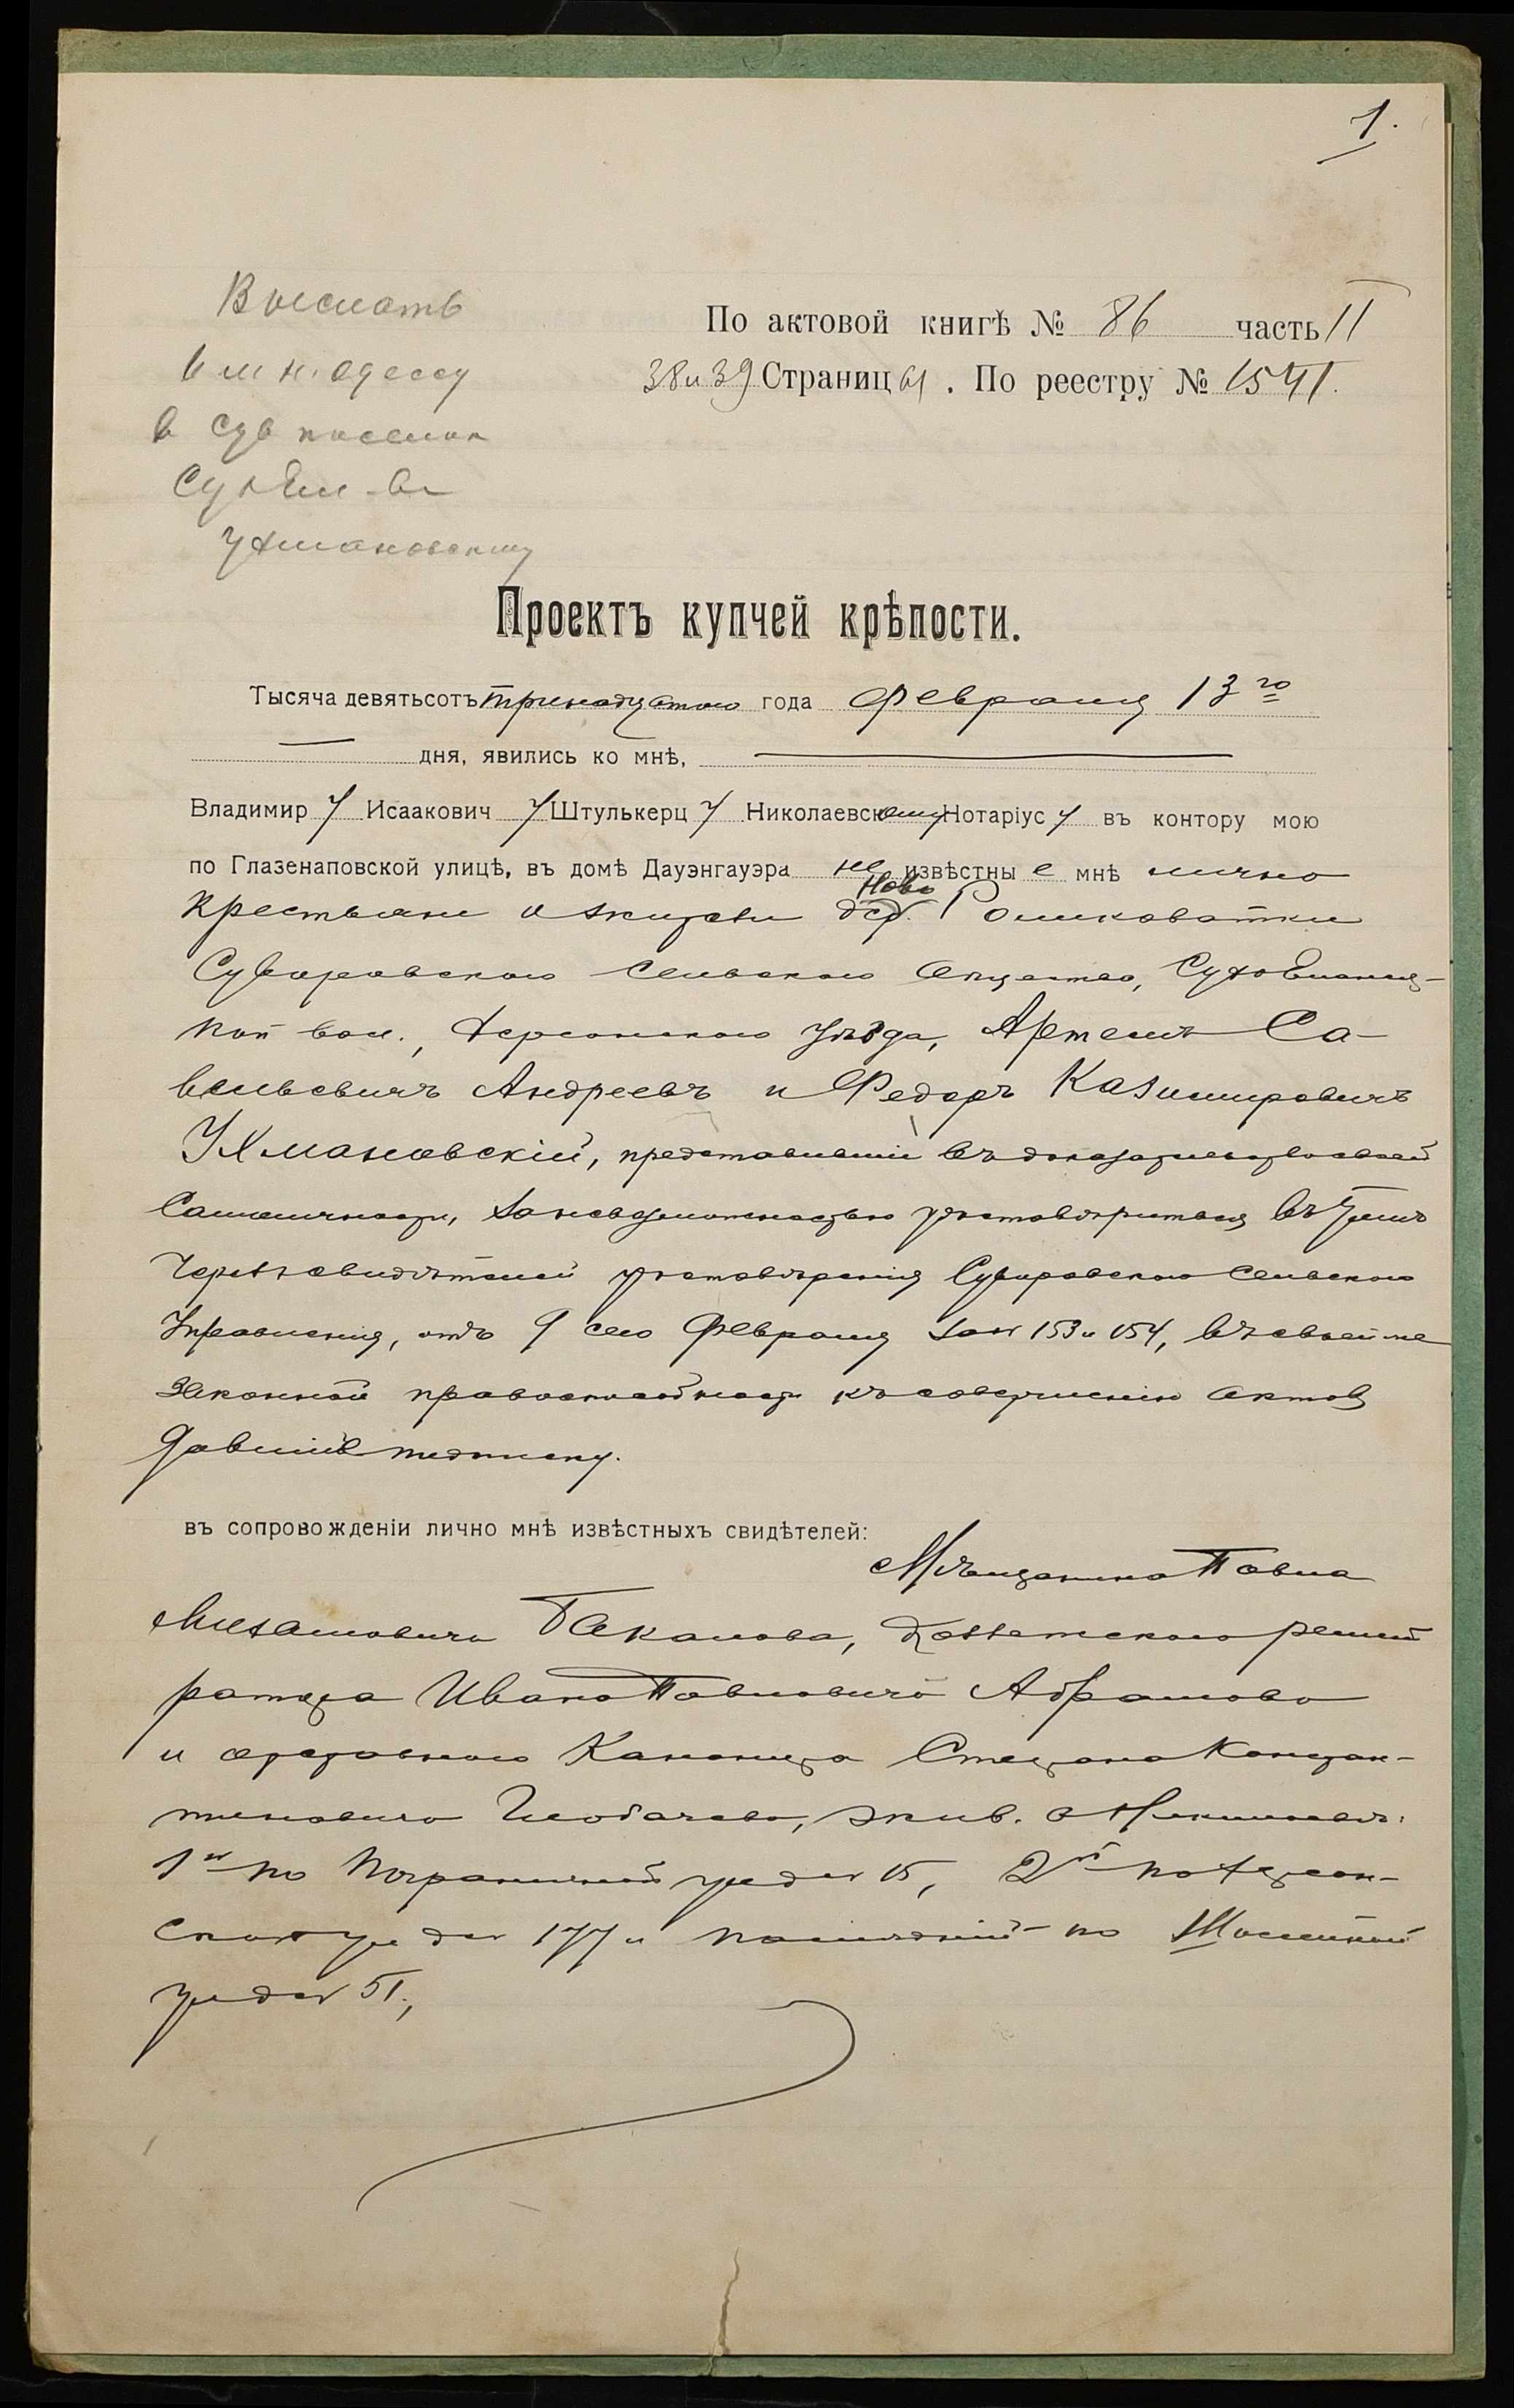 1.
Выслать
в м. Н. Одессу
в
Сухо Елан. в.
Ухмановскому
По актовой книгѣ № 86 часть II
38 и 39 Страницы. По реестру № 1541.
Проектъ купчей крѣпости.
Тысяча девятьсотъ тринадцатого года Февраля 13го
дня, явились ко мнѣ,
Владимир у Исаакович у Штулькерц у Николаевскому Нотаріус у въ контору мою
по Глазенаповской улицѣ, въ домѣ Дауэнгауэра не извѣстные мнѣ лично
Ново
крестьяне и жители дер. Ромиковатки
Суворовского сельского Общества, Сухо Еланец-
кой вол., Херсонского уѣзда, Артемъ Са-
вельевичъ Андреевъ и Федоръ Казимировичъ
Ухмановскій, представившіе въ доказательство своей
самоличности, за невозможностью удостовѣриться въ том
черезъ свидѣтелей удостовѣренія Суворовского Сельского
Управленія, отъ 9 сего Февраля за № 153 и 154, въ своей же
законной правоспособности къ совершенію актов
давшіе подписку.
въ сопровожденіи лично мнѣ извѣстныхъ свидѣтелей:
Мѣщанина Павла
Михайловича Бакалова, Коллежского регист
ратора Ивана Павловича Абрамова
и отставного Стефана Констан-
тиновича жив. в г. Николаевѣ:
1й по Пограничной ул. д. № 15, 2й по Херсон-
ской ул. д. № 177 и послѣдній по
ул. д. № 51,